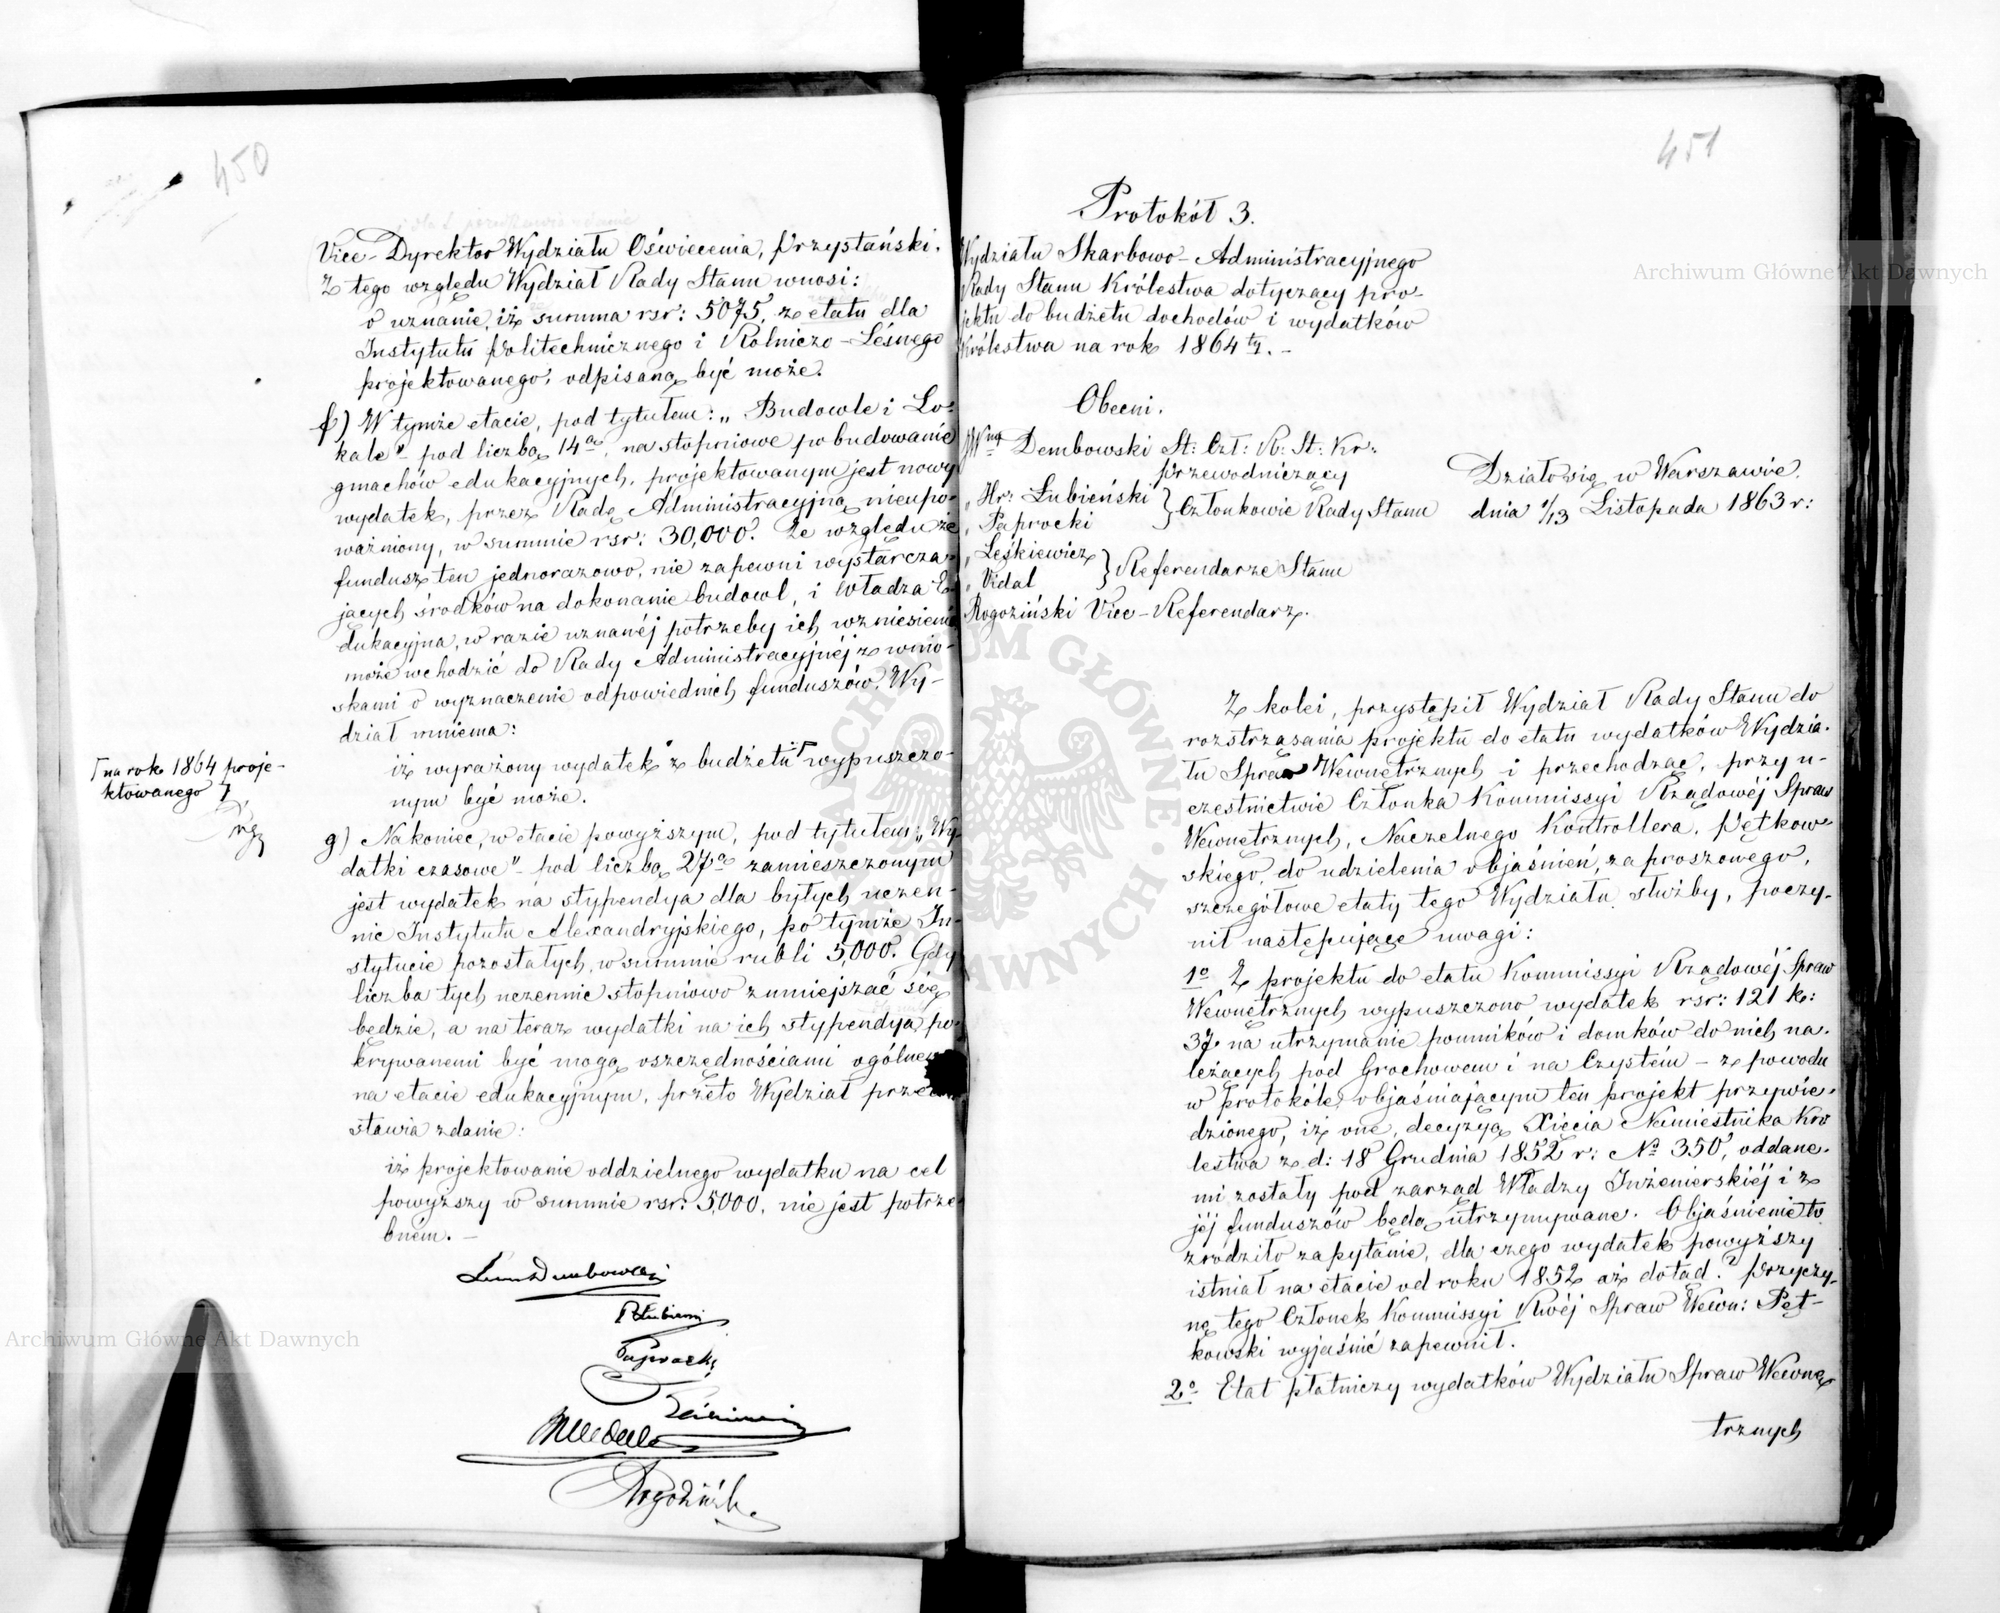 450
Vice-Dyrektor Wydziału Oświecenia, Przystański.
Z tego względu Wydział Rady Stanu wnosi:
o uznanie, iż summa rsr: 5075, z etatu dla
Instytutu Politechnicznego i Rolniczo-Leśnego
projektowanego, odpisaną być może.
f) W tymże etacie, pod tytułem: „Budowle i Lo-
kale" pod liczbą 14ą, na stopniowe pobudowanie
gmachów edukacyjnych, projektowanym jest nowy
wydatek, przez Radę Administracyjną nieupo-
ważniony, w summie rsr: 30,000. Ze względu że
fundusz ten jednorazowo, nie zapewni wystarcza-
jących środków na dokonanie budowl, i Władza E-
dukacyjna, w razie uznanéj potrzeby ich wzniesienia
może wchodzić do Rady Administracyjnéj z wnio-
skami o wyznaczenie odpowiednich funduszów, Wy-
dział mniema:
iż wyrażony wydatek z budżetu ⌈ wypuszczo-
nym być może.
⌈ na rok 1864 proje-
ktowanego ⌉
g) Nakoniec, w etacie powyższym, pod tytułem „Wy-
datki czasowe" pod liczbą 27ą zamieszczonym
jest wydatek na stypendya dla byłych uczen-
nic Instytutu Alexandryjskiego, po tymże In-
stytucie pozostałych, w summie rubli 5,000. Gdy
liczba tych uczennic stopniowo zmniejszać się
będzie, a na teraz wydatki na ich stypendya po-
krywanemi być mogą oszczędnościami ogólnemi
na etacie edukacyjnym, przeto Wydział przed-
stawia zdanie:
iż projektowanie oddzielnego wydatku na cel
powyższy w summie rsr: 5,000, nie jest potrze-
bném. —
Dembowski
Łubieński
Paprocki
Rogoziński
451
Protokół 3.
Wydziału Skarbowo-Administracyjnego
Rady Stanu Królestwa dotyczący pro-
jektu do budżetu dochodów i wydatków
Królestwa na rok 1864ty. —
Obecni.
JWny Dembowski St: Czł: R: St: Kr:
Przewodniczący
„ Hr: Łubieński } Członkowie Rady Stanu
„ Paprocki
„ Leśkiewicz } Referendarze Stanu
„ Vidal
Rogoziński Vice-Referendarz.
Działo się w Warszawie,
dnia 1/13 Listopada 1863 r:
Z kolei, przystąpił Wydział Rady Stanu do
rozstrząsania projektu do etatu wydatków Wydzia-
łu Spraw Wewnętrznych i przechodząc, przy u-
czestnictwie Członka Kommissyi Rządowéj Spraw
Wewnętrznych, Naczelnego Kontrollera, Pętkow-
skiego, do udzielenia objaśnień, zaproszonego,
szczegółowe etaty tego Wydziału służby, poczy-
nił następujące uwagi:
1o Z projektu do etatu Kommissyi Rządowéj Spraw
Wewnętrznych wypuszczono wydatek rsr: 121 k:
37 na utrzymanie pomników i domków do nich na-
leżących pod Grochowem i na Czystém – z powodu
w protokóle, objaśniającym ten projekt przywie-
dzionego, iż one, decyzyą Xięcia Namiestnika Kró
lestwa z d: 18 Grudnia 1852 r: No 350, oddane-
mi zostały pod zarząd Władzy Inżenierskiéj i z
jéj funduszów będą utrzymywane. Objaśnienie to
zrodziło zapytanie, dla czego wydatek powyższy
istniał na etacie od roku 1852 aż dotąd? Przyczy-
nę tego Członek Kommissyi Rwéj Spraw Wewn: Pęt-
kowski wyjaśnić zapewnił.
2o Etat płatniczy wydatków Wydziału Spraw Wewnę
trznych
Archiwum Główne Akt Dawnych
Archiwum Główne Akt Dawnych
ARCHIWUM GŁÓWNE AKT DAWNYCH